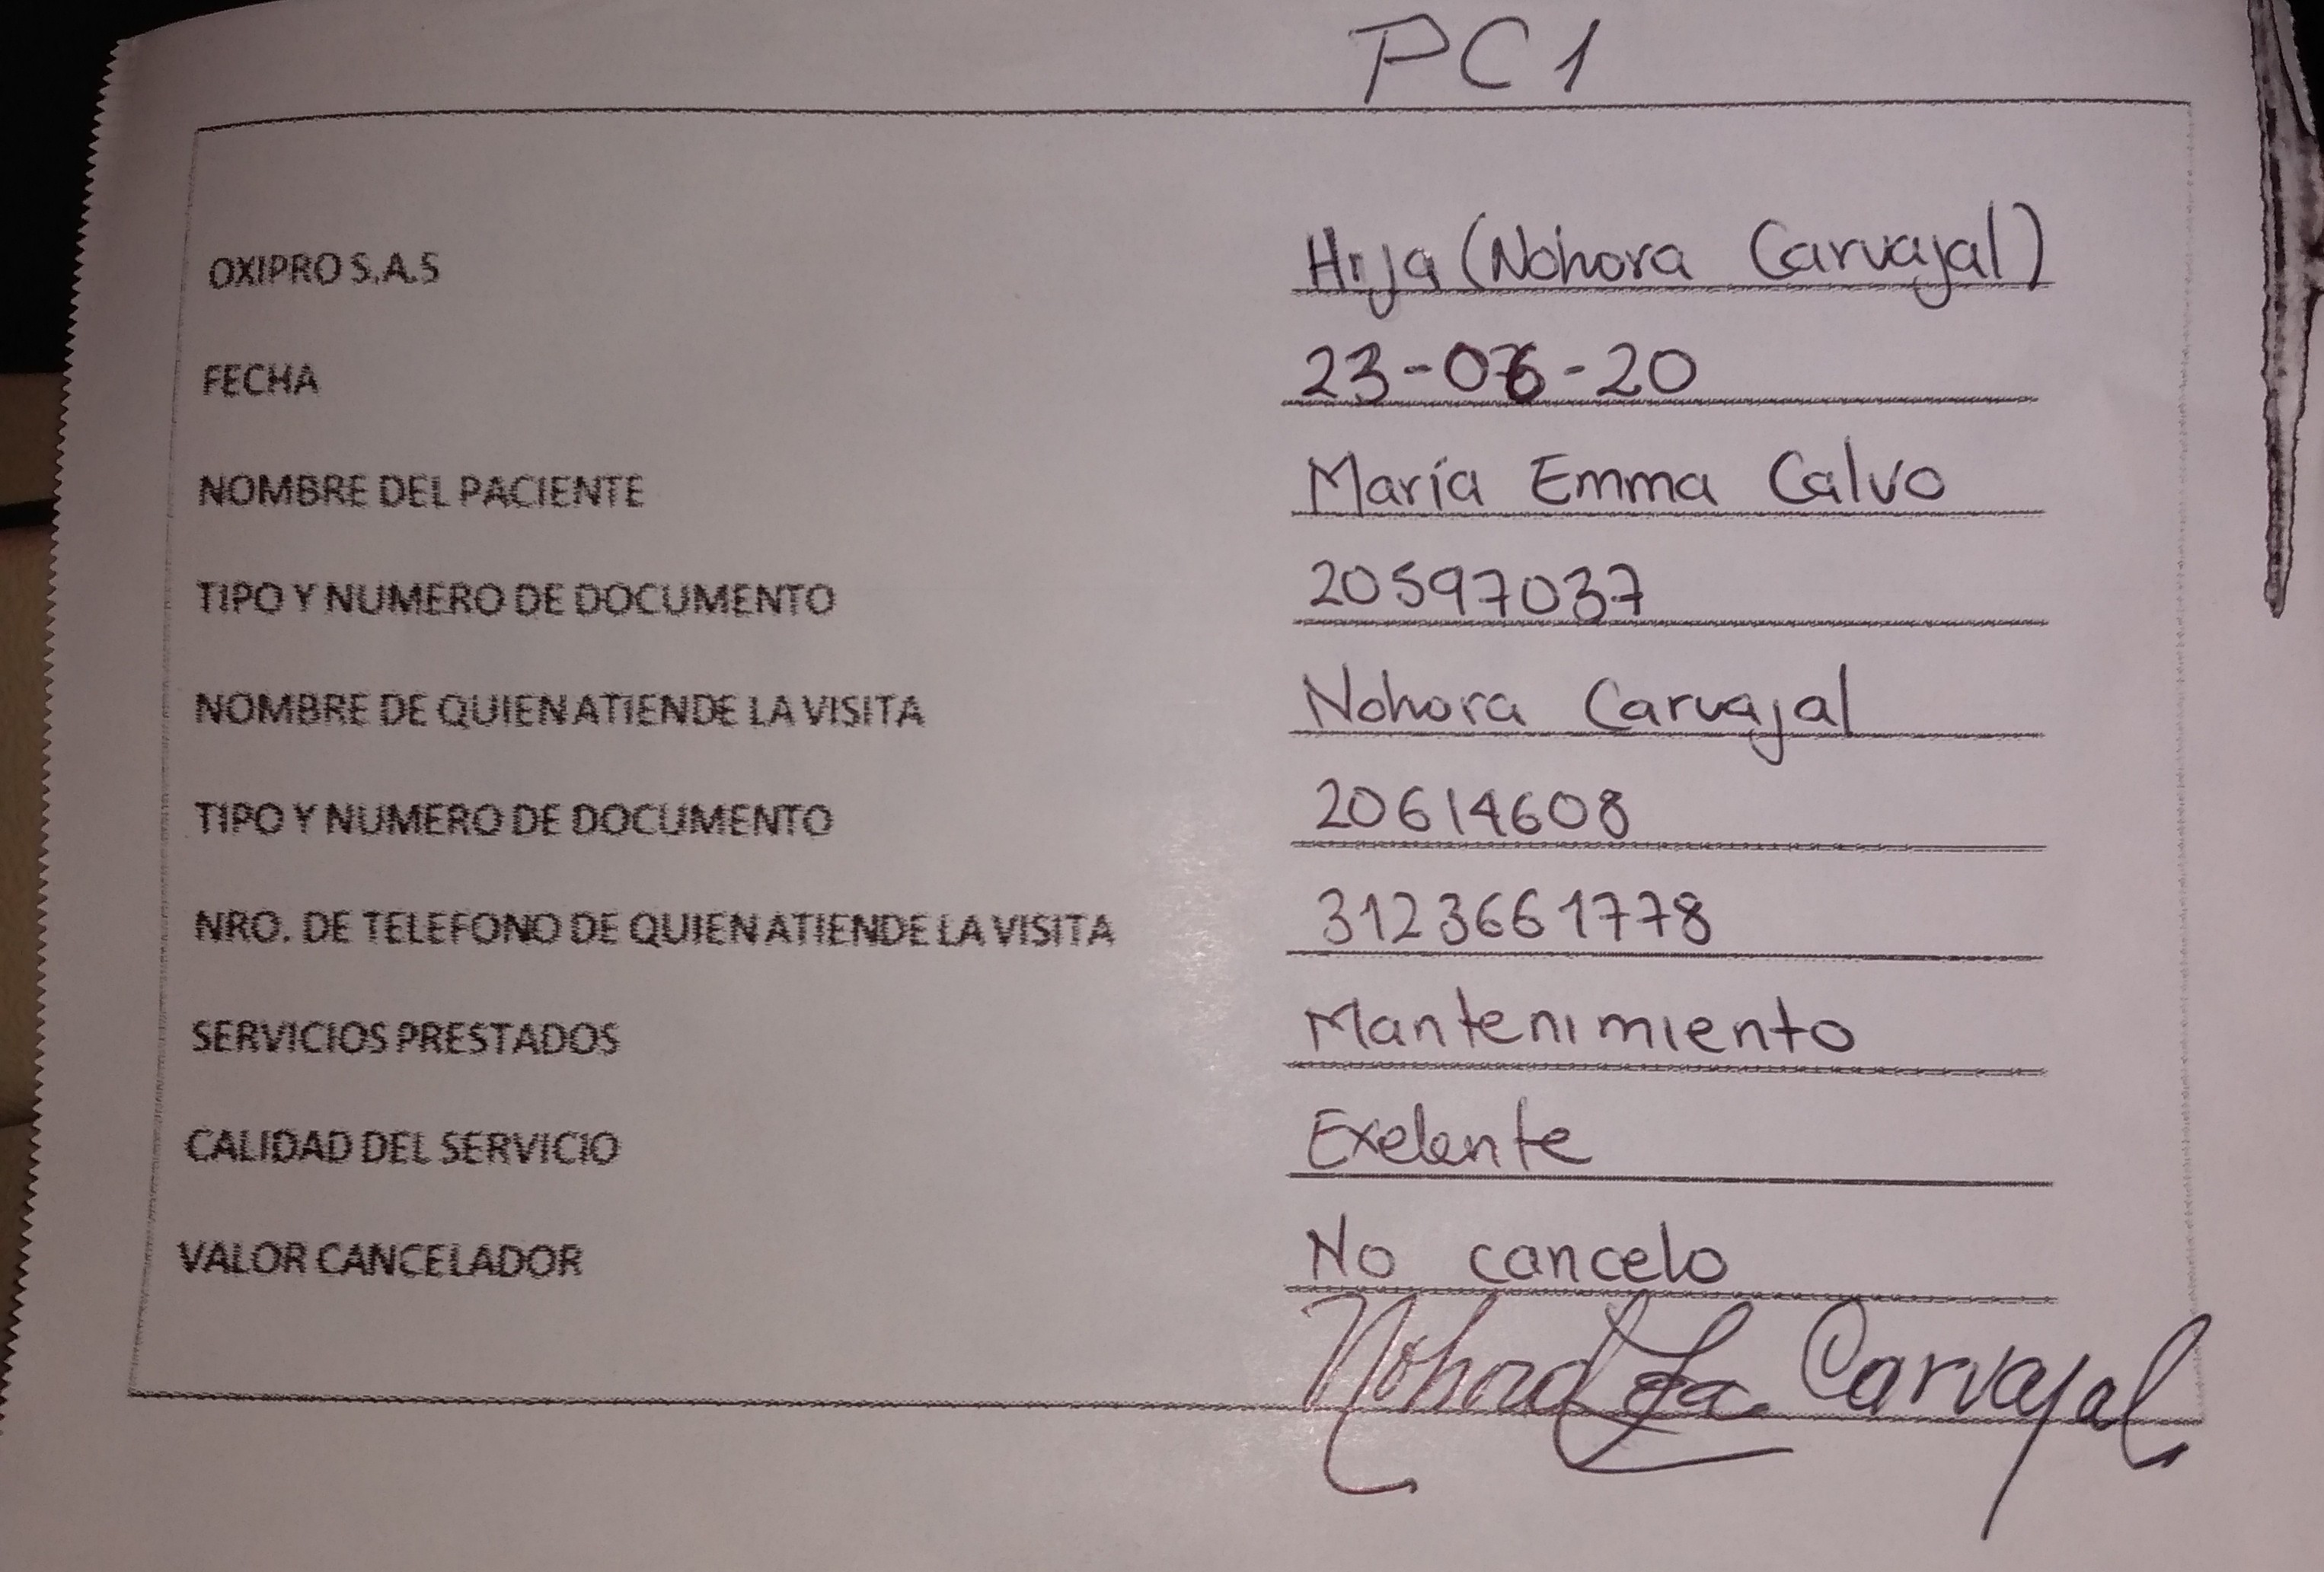 PC1
OXIPRO S.A.S Hija (Nohora Carvajal)
FECHA 23-06-20
NOMBRE DEL PACIENTE María Emma Calvo
TIPO Y NUMERO DE DOCUMENTO 20597037
NOMBRE DE QUIEN ATIENDE LA VISITA Nohora Carvajal
TIPO Y NUMERO DE DOCUMENTO 20614608
NRO. DE TELEFONO DE QUIEN ATIENDE LA VISITA 3123661778
SERVICIOS PRESTADOS Mantenimiento
CALIDAD DEL SERVICIO Exelente
VALOR CANCELADOR No cancelo
Nohora Carvajal